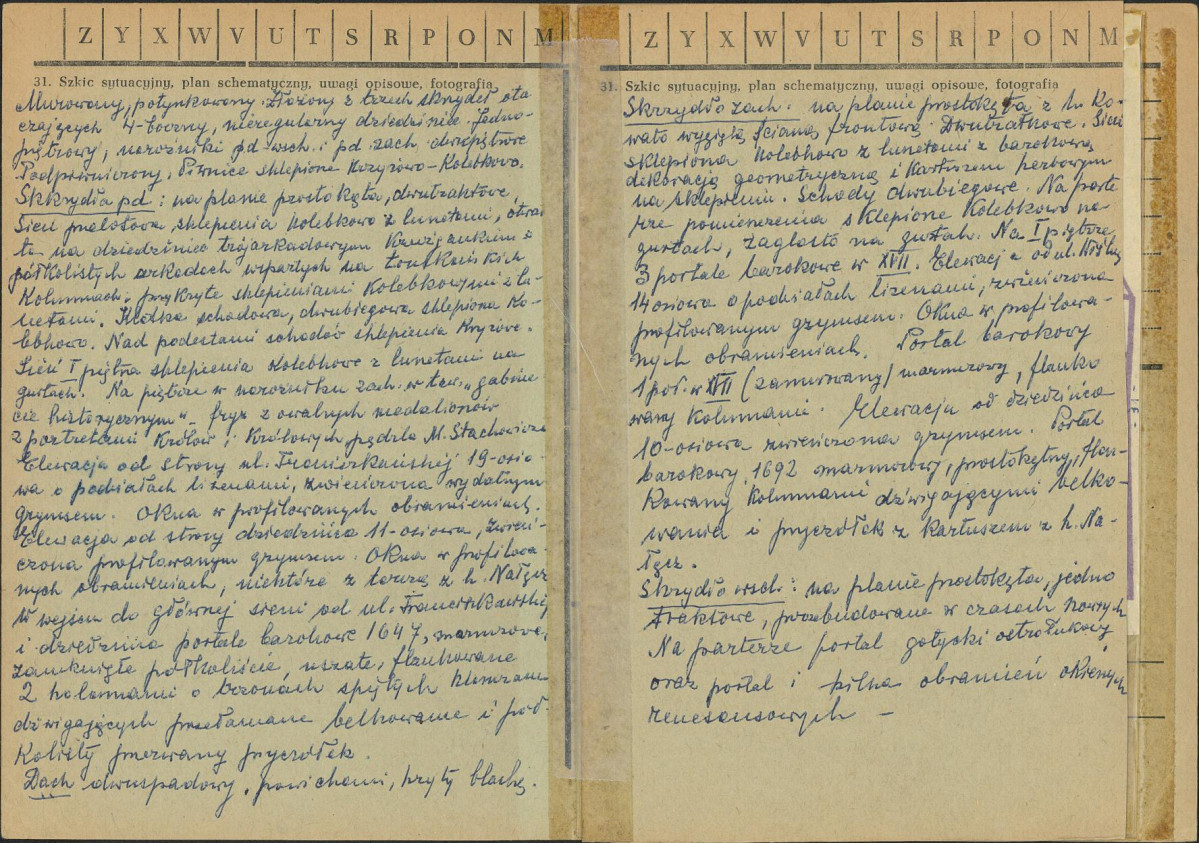 Z Y X W V U T S R P O N M
31. Szkic sytuacyjny, plan schematyczny, uwagi opisowe, fotografia
Murowany, potynkowany. Złożony z trzech skrzydeł ota
czających 4-boczny, nieregularny dziedziniec. Jedno-
piętrowy, narożniki pd-wsch. i pd. zach. dwupiętrowe
Podpiwniczony. Piwnice sklepione krzyżowo-kolebkowo.
Skrzydła pd: na planie prostokąta, dwutraktowe,
Sień przelotowa sklepienia kolebkowo z lunetami, otwar
ta na dziedziniec trójarkadowym krużgankiem o
półkolistych arkadach wspartych na toskańskich
kolumnach; przykryte sklepieniami kolebkowymi z lu
netami. Klatka schodowa, dwubiegowa sklepiona ko-
lebkowo. Nad podestami schodów sklepienia kryżowe.
Sień I piętra sklepienia kolebkowe z lunetami na
gurtach. Na piętrze w narożniku zach. w tzw. "gabine
cie historycznym" - fryz z owalnych medalionów
z portretami królów i królowych pędzla M. Stachowicza
Elewacja od strony ul. Franciszkańskiej 19-osio-
wa o podziałach lizenami, zwieńczona wydatnym
gzymsem. Okna w profilowanych obramieniach.
Elewacja od strony dziedzińca 11-osiowa, zwień-
czona profilowanym gzymsem. Okna w profilowa-
nych obramieniach, niektóre z tarczą z h. Nałęcz
W wejściu do głównej sieni od ul. Franciszkańskiej
i dziedzińca portale barokowe 1647, marmurowe,
zamknięte półkoliście, uszate, flankowane
2 kolumnami o trzonach spiętych klamrami
dźwigających przełamane belkowanie i pół-
kolisty przerwany przyczółek.
Dach dwuspadowy, powichami, kryty blachą.
Z Y X W V U T S R P O N M
31. Szkic sytuacyjny, plan schematyczny, uwagi opisowe, fotografia
Skrzydło zach: na planie prostokąta z h. ko-
wato wygiętą ścianą frontową. Dwutraktowe. Sień
sklepiona kolebkowo z lunetami z barokową
dekoracją geometryczną i kartuszem herbowym
na sklepieniu. Schody dwubiegowe. Na parte
rze pomieszczenia sklepione kolebkowo na
gurtach, żaglasto na gurtach. Na I piętrze
3 portale barokowe w XVII. Elewacja od ul. Wiślnej
14 osiowa o podziałach lizenami, zwieńczona
profilowanym gzymsem. Okna w profilowa-
nych obramieniach. Portal barokowy
1 poł. w XVII (zamurowany) marmurowy, flanko
wany kolumnami. Elewacja od dziedzińca
10-osiowa zwieńczona gzymsem. Portal
barokowy 1692 marmurowy, prostokątny, flan-
kowany kolumnami dźwigającymi belko-
wanie i przyczółek z kartuszem z h. Na-
łęcz.
Skrzydło wsch: na planie prostokąta, jedno
traktowe, przebudowane w czasach nowszych
Na parterze portal gotycki ostrołukowy
oraz portal i kilka obramień okiennych
renesansowych -